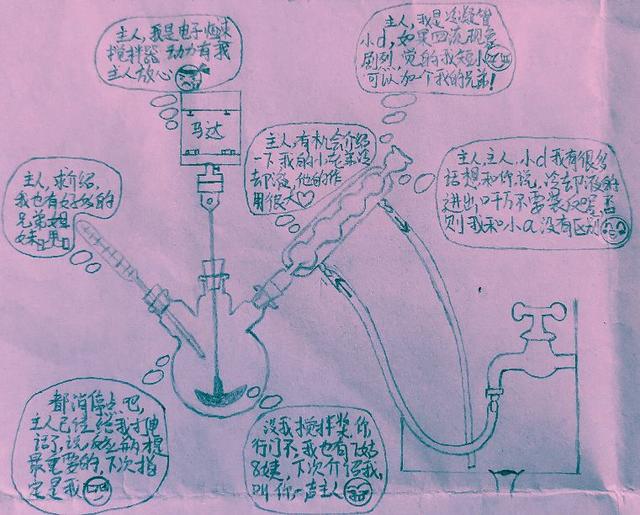 主人,我是电子恒速
搅拌器 动力有我
主人放心
马达
主人,我是冷凝管
小d,如果回流现象
剧烈,觉的我短小
可以加个我的兄弟!
主人,有机会介绍
一下我的小老弟冷
却液,他的作
用很大
主人,主人,小d我有很多
话想和你说,冷却液的
进出口千万不要装反喔 否
则我和小a没有区别
主人,求介绍,
我也有好多的
兄弟姐
妹
都消停点吧,
主人已经给我打电
话了,说反应瓶提
最重要的,下次指
定是我
没我搅拌桨,你
行门不,我也有
下次介绍我,
叫你一声主人